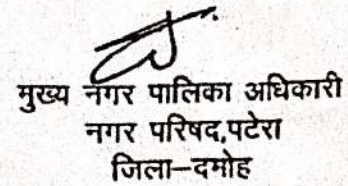 मुख्य नगर पालिका अधिकारी
नगर परिषद,पटेरा
जिला–दमोह